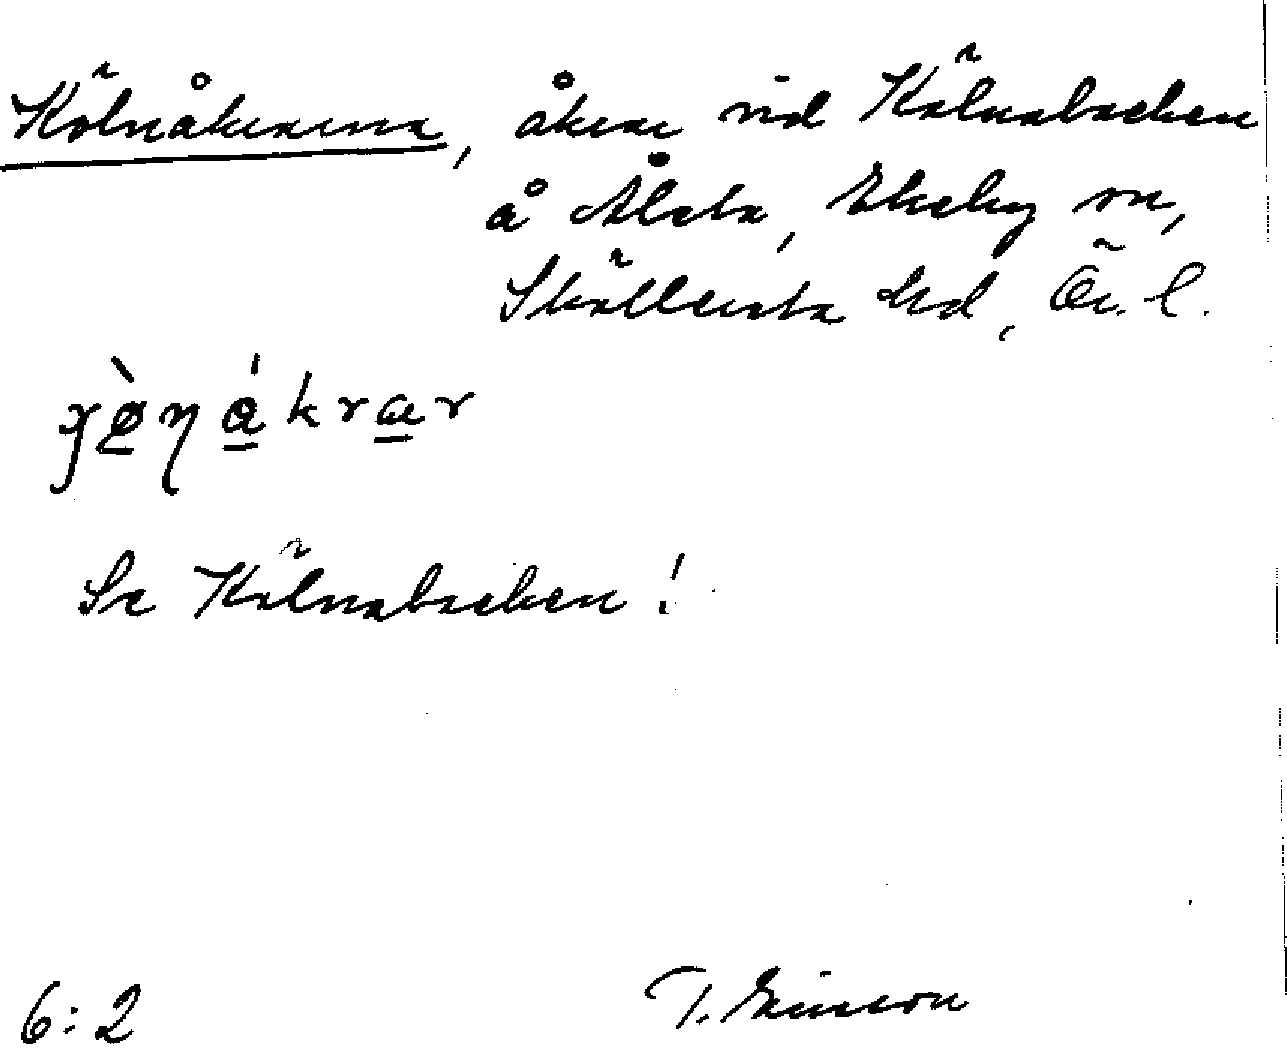 Kölnåkrarna, åkrar vid Kölnabacken
å Ålsta, Ekeby sn,
Sköllersta hd, Ör. l.
Se Kölnabacken!
6:2
T. Ericsson